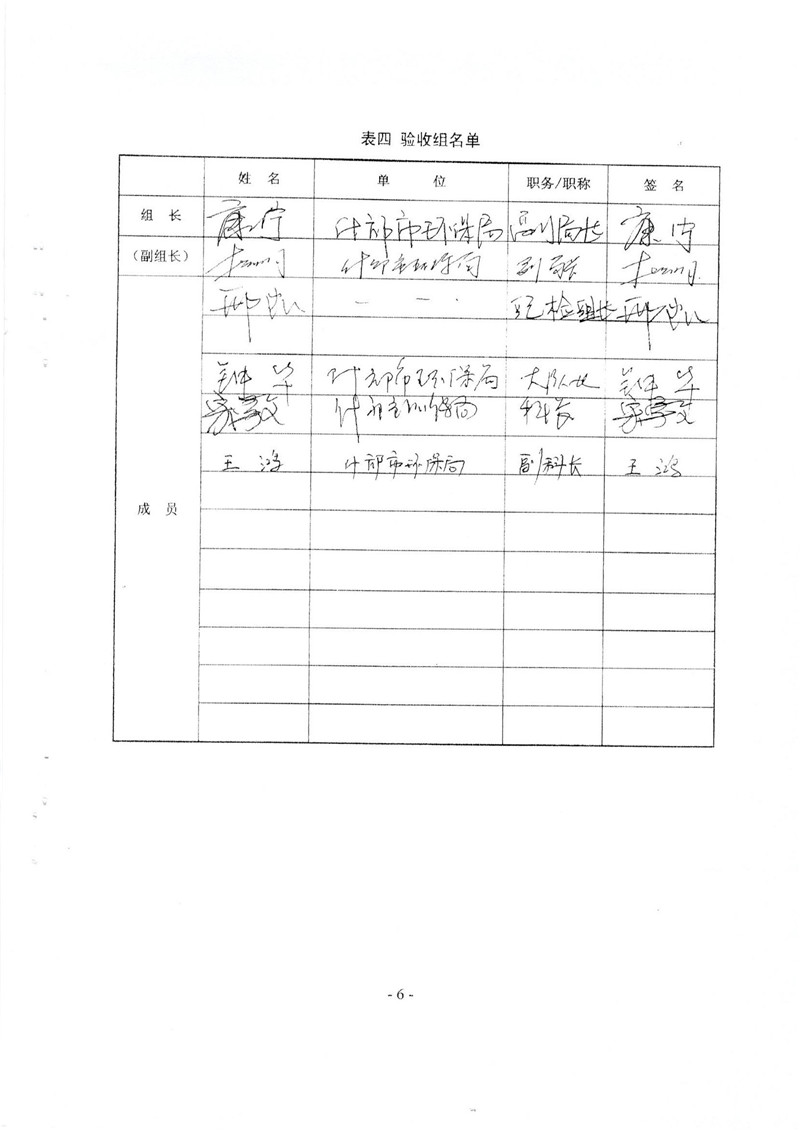 表四 验收组名单
姓 名 单 位 职务/职称 签 名
组 长 康宁 什邡市环保局 副局长 康宁
(副组长) 什邡市环保局 副局长
邢 纪检组长 邢
什邡市环保局 大队长
什邡市环保局 科长
王鸿 什邡市环保局 副科长 王鸿
成 员
- 6 -